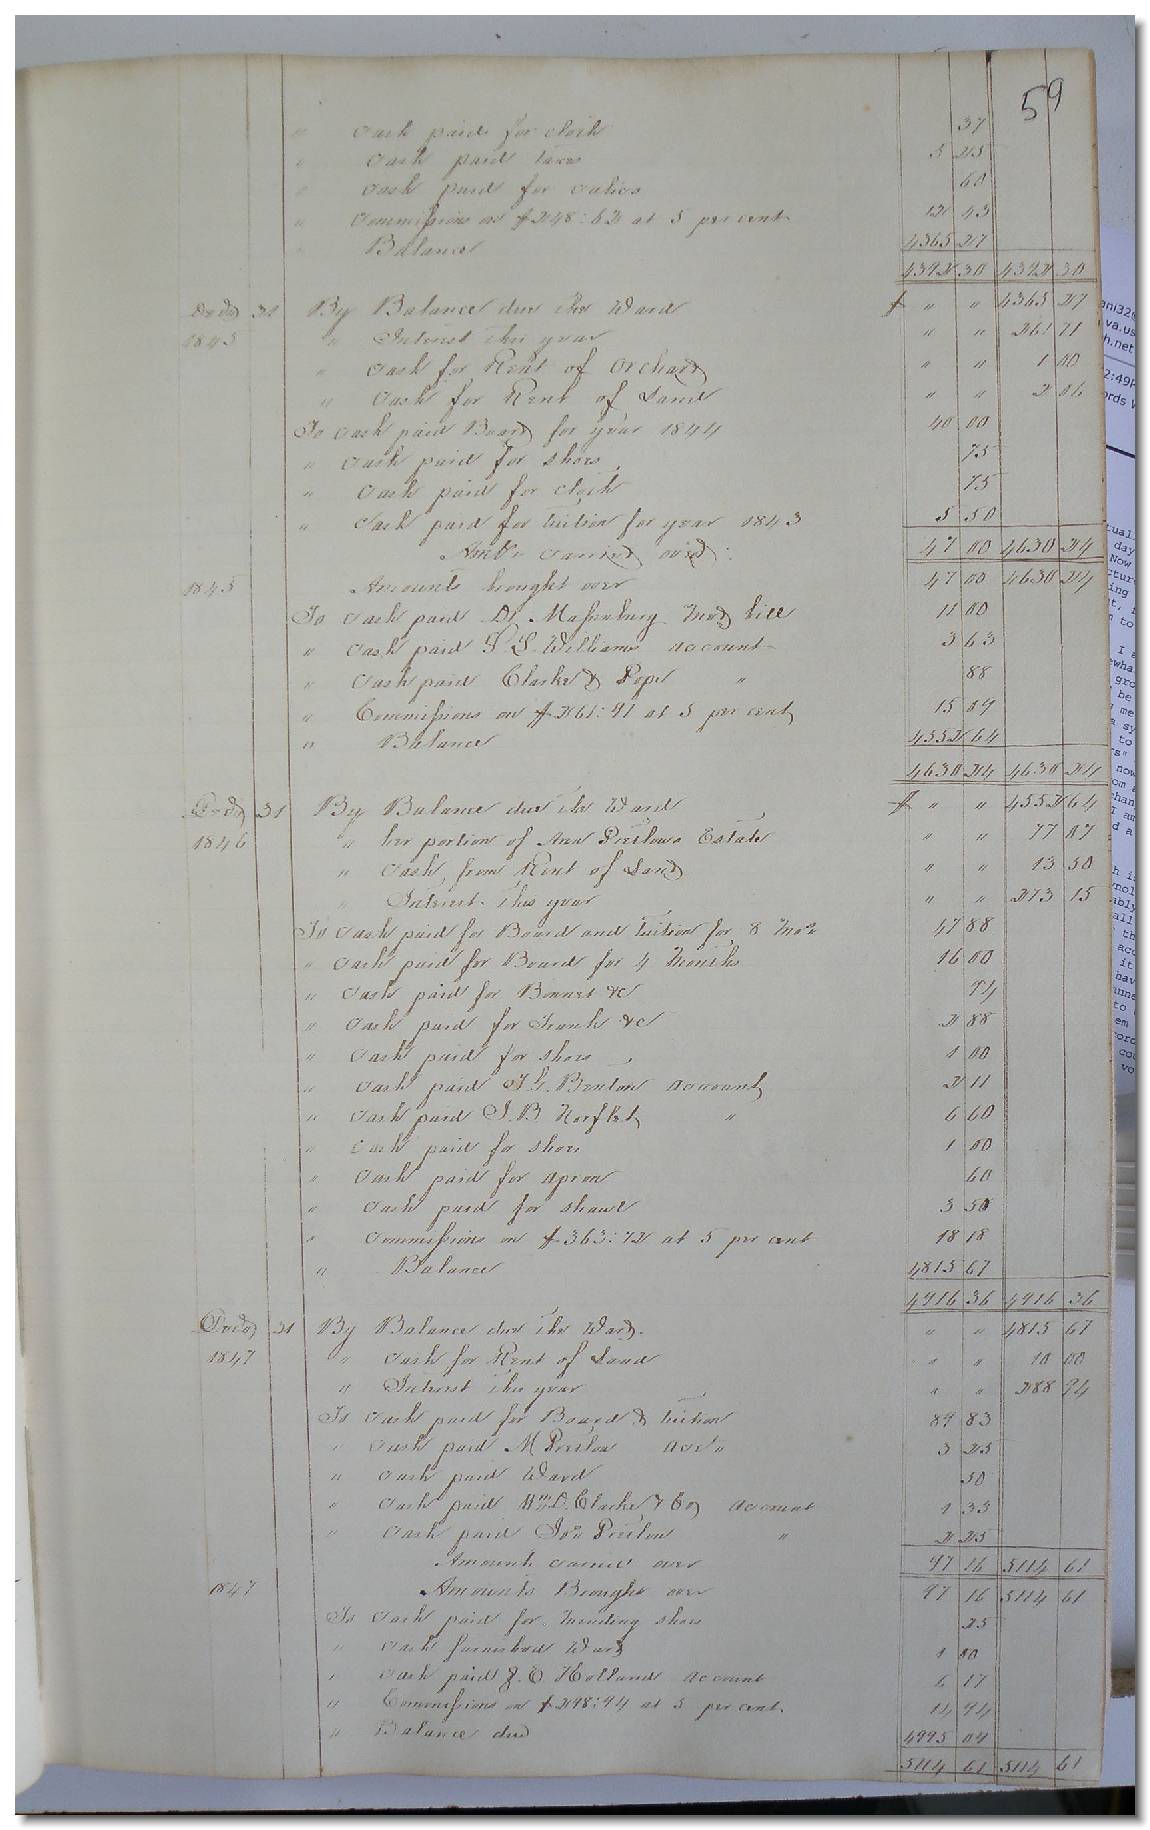 59
" Cash paid for cloth 37
" Cash paid taxes 5 25
" Cash paid for calico 60
" Commissions on $248:62 at 5 per cent 12 43
" Balance 4365 27
4392 30 4392 30
31 By Balance due the Ward $ " " 4365 27
1845 " Interest this year " " 261 91
" Cash for Rent of Orchard " " 1 00
" Cash for Rent of Land " " 2 06
To Cash paid Board for year 1844 40 00
" Cash paid for shoes 75
" Cash paid for cloth 75
" Cash paid for tuition for year 1843 5 50
Amts carried over 47 00 4630 24
1845 Amounts brought over 47 00 4630 24
To Cash paid Dr Massenburg Med bill 11 00
" Cash paid Williams account 3 63
" Cash paid Clarke & Pope " 88
" Commissions on $261:91 at 5 per cent 13 09
" Balance 4552 64
4630 24 4630 24
31 By Balance due the Ward $ " " 4552 64
1846 " her portion of Ann Pretlows Estate " " 77 07
" Cash from Rent of Land " " 13 50
" Interest this year " " 273 15
To Cash paid for Board and tuition for 8 Mos 47 88
" Cash paid for Board for 4 Months 16 00
" Cash paid for Bonnet &c 94
" Cash paid for Trunk &c 2 88
" Cash paid for shoes 1 00
" Cash paid Benton account 2 11
" Cash paid Norfleet " 6 60
" Cash paid for shoes 1 00
" Cash paid for apron 60
" Cash paid for shawl 3 50
" Commissions on $363:72 at 5 per cent 18 18
" Balance 4815 67
4916 36 4916 36
31 By Balance due the Ward " " 4815 67
1847 " Cash for Rent of Land " " 10 00
" Interest this year " " 288 94
To Cash paid for Board & tuition 89 83
" Cash paid M Pretlow 3 25
" Cash paid Ward 50
" Cash paid Clarke & Co account 1 33
" Cash paid Pretlow " 2 25
Amounts carried over 97 16 5114 61
1847 Amounts Brought over 97 16 5114 61
To Cash paid for mending shoes 25
" Cash furnished Ward 1 00
" Cash paid Holland account 6 17
" Commissions on $298:94 at 5 per cent. 14 94
" Balance due 4995 09
5114 61 5114 61